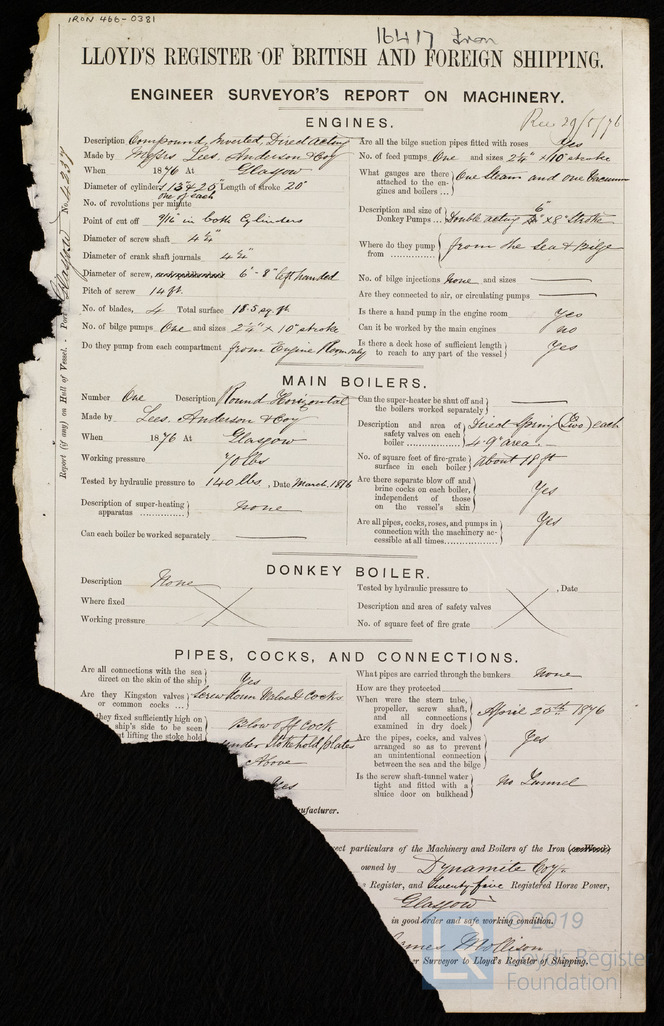 IRON 466-0381
16417 Iron
LLOYD'S REGISTER OF BRITISH AND FOREIGN SHIPPING.
ENGINEER SURVEYOR'S REPORT ON MACHINERY.
Rec 29/5/76
Report (if any) on Hull of Vessel. - Port Glasgow No. 4237
ENGINES.
Description Compound, Inverted, Direct acting
Made by Messrs Lees. Anderson & Coy
When 1876 At Glasgow
Diameter of cylinders 13" & 25" Length of stroke 20"
one of each
No. of revolutions per minute
Point of cut off 9/16 in both Cylinders
Diameter of screw shaft 4 3/4"
Diameter of crank shaft journals 4 3/4"
Diameter of screw, 6' - 8" left handed
Pitch of screw 14 ft
No. of blades, 4 Total surface 18.5 sq. ft
No. of bilge pumps One and sizes 2 1/4" x 10" stroke
Do they pump from each compartment from Engine Room only
Are all the bilge suction pipes fitted with roses Yes
No. of feed pumps One and sizes 2 1/4" x 10" stroke
What gauges are there attached to the engines and boilers ... One Steam and one Vacuum
Description and size of Donkey Pumps ... Double acting 6" x 8" Stroke
Where do they pump from from the Sea & Bilge
No. of bilge injections None and sizes
Are they connected to air, or circulating pumps
Is there a hand pump in the engine room Yes
Can it be worked by the main engines no
Is there a deck hose of sufficient length to reach to any part of the vessel Yes
MAIN BOILERS.
Number One Description Round Horizontal
Made by Lees. Anderson & Coy
When 1876 At Glasgow
Working pressure 70 lbs
Tested by hydraulic pressure to 140 lbs, Date March. 1876
Description of super-heating apparatus none
Can each boiler be worked separately
Can the super-heater be shut off and the boilers worked separately
Description and area of safety valves on each boiler Direct Spring (Two) each 4.9" area
No. of square feet of fire-grate surface in each boiler About 18 ft
Are there separate blow off and brine cocks on each boiler, independent of those on the vessel's skin Yes
Are all pipes, cocks, roses, and pumps in connection with the machinery accessible at all times Yes
DONKEY BOILER.
Description None
Where fixed
Working pressure
Tested by hydraulic pressure to , Date
Description and area of safety valves
No. of square feet of fire grate
PIPES, COCKS, AND CONNECTIONS.
Are all connections with the sea direct on the skin of the ship Yes
Are they Kingston valves or common cocks ... Screw down Valves & Cocks
they fixed sufficiently high on
ship's side to be seen
lifting the stoke hold
Blow off cock
under Stokehold plates
Above
Yes
What pipes are carried through the bunkers None
How are they protected
When were the stern tube, propeller, screw shaft, and all connections examined in dry dock April 25th 1876
Are the pipes, cocks, and valves arranged so as to prevent an unintentional connection between the sea and the bilge Yes
Is the screw shaft-tunnel water tight and fitted with a sluice door on bulkhead No Tunnel
ufacturer.
ect particulars of the Machinery and Boilers of the Iron (or Wood)
owned by Dynamite Coy.
s Register, and Twenty-five Registered Horse Power,
Glasgow
in good order and safe working condition.
James Mollison
er Surveyor to Lloyd's Register of Shipping.
LR
© 2019
Lloyd's Register
Foundation